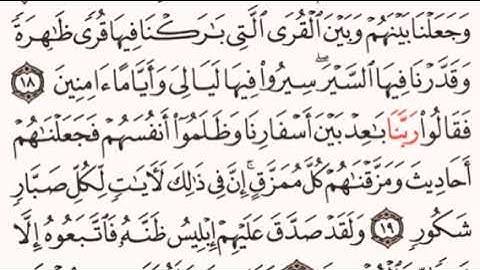 وَجَعَلْنَا بَيْنَهُمْ وَبَيْنَ ٱلْقُرَى ٱلَّتِى بَـٰرَكْنَا فِيهَا قُرًى ظَـٰهِرَةً
وَقَدَّرْنَا فِيهَا ٱلسَّيْرَ ۖ سِيرُوا۟ فِيهَا لَيَالِىَ وَأَيَّامًا ءَامِنِينَ ١٨
فَقَالُوا۟ رَبَّنَا بَـٰعِدْ بَيْنَ أَسْفَارِنَا وَظَلَمُوٓا۟ أَنفُسَهُمْ فَجَعَلْنَـٰهُمْ
أَحَادِيثَ وَمَزَّقْنَـٰهُمْ كُلَّ مُمَزَّقٍ ۚ إِنَّ فِى ذَٰلِكَ لَـَٔايَـٰتٍ لِّكُلِّ صَبَّارٍ
شَكُورٍ ١٩ وَلَقَدْ صَدَّقَ عَلَيْهِمْ إِبْلِيسُ ظَنَّهُۥ فَٱتَّبَعُوهُ إِلَّا